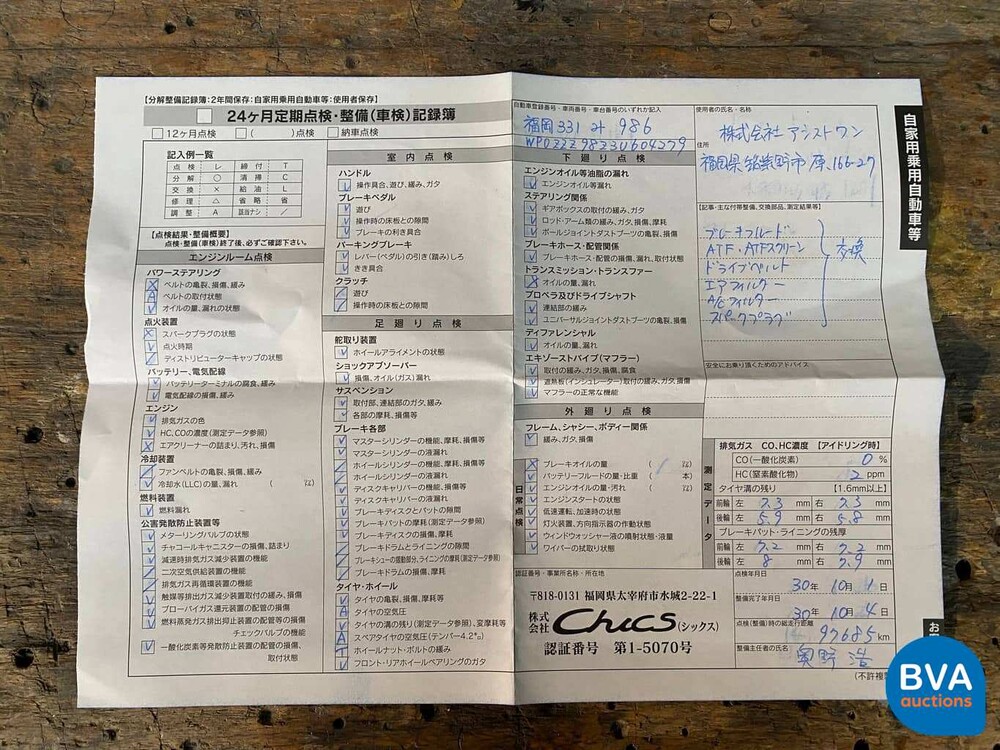 【分解整備記録簿：2年間保存：自家用乗用自動車等：使用者保存】
24ヶ月定期点検・整備（車検）記録簿
12ヶ月点検 （ ）点検 納車点検
記入例一覧
点検 レ 締付 T
分解 ○ 清掃 C
交換 × 給油 L
修理 △ 省略 省
調整 A 該当ナシ ／
【点検結果・整備概要】
点検・整備(車検)終了後、必ずご確認下さい。
エンジンルーム点検
パワーステアリング
ベルトの亀裂、損傷、緩み
ベルトの取付状態
オイルの量、漏れの状態
点火装置
スパークプラグの状態
点火時期
ディストリビューターキャップの状態
バッテリー、電気配線
バッテリーターミナルの腐食、緩み
電気配線の損傷、緩み
エンジン
排気ガスの色
HC,COの濃度(測定データ参照)
エアクリーナーの詰まり、汚れ、損傷
冷却装置
ファンベルトの亀裂、損傷、緩み
冷却水(LLC)の量、漏れ （ ㍑）
燃料装置
燃料漏れ
公害発散防止装置等
メターリングバルブの状態
チャコールキャニスターの損傷、詰まり
減速時排気ガス減少装置の機能
二次空気供給装置の機能
排気ガス再循環装置の機能
触媒等排出ガス減少装置取付の緩み、損傷
ブローバイガス還元装置の配管の損傷
燃料蒸発ガス排出抑止装置の配管等の損傷
チェックバルブの機能
一酸化炭素等発散防止装置の配管の損傷、
取付状態
室内点検
ハンドル
操作具合、遊び、緩み、ガタ
ブレーキペダル
遊び
操作時の床板との隙間
ブレーキの利き具合
パーキングブレーキ
レバー(ペダル)の引き(踏み)しろ
きき具合
クラッチ
遊び
操作時の床板との隙間
足廻り点検
舵取り装置
ホイールアライメントの状態
ショックアブソーバー
損傷、オイル(ガス)漏れ
サスペンション
取付部、連結部のガタ、緩み
各部の摩耗、損傷等
ブレーキ各部
マスターシリンダーの機能、摩耗、損傷等
マスターシリンダーの液漏れ
ホイールシリンダーの機能、摩耗、損傷等
ホイールシリンダーの液漏れ
ディスクキャリパーの機能、損傷等
ディスクキャリパーの液漏れ
ブレーキディスクとパットの隙間
ブレーキパットの摩耗(測定データ参照)
ブレーキディスクの損傷、摩耗
ブレーキドラムとライニングの隙間
ブレーキシューの摺動部分、ライニングの摩耗(測定データ参照)
ブレーキドラムの損傷、摩耗
タイヤ・ホイール
タイヤの亀裂、損傷、摩耗等
タイヤの空気圧
タイヤの溝の残り(測定データ参照)、変摩耗等
スペアタイヤの空気圧(テンパー4.2㌔)
ホイールナット・ボルトの緩み
フロント・リアホイールベアリングのガタ
自動車登録番号・車両番号・車台番号のいずれか記入
福岡 331 み 986
WP0ZZZ98Z3U604579
下廻り点検
エンジンオイル等油脂の漏れ
エンジンオイル等漏れ
ステアリング関係
ギアボックスの取付の緩み、ガタ
ロッド・アーム類の緩み、ガタ、損傷、摩耗
ボールジョイントダストブーツの亀裂、損傷
ブレーキホース・配管関係
ブレーキホース・配管の損傷、漏れ、取付状態
トランスミッション・トランスファー
オイルの量、漏れ
プロペラ及びドライブシャフト
連結部の緩み
ユニバーサルジョイントダストブーツの亀裂、損傷
ディファレンシャル
オイルの量、漏れ
エキゾーストパイプ(マフラー)
取付の緩み、ガタ、損傷、腐食
遮熱板(インシュレーター)取付の緩み、ガタ、損傷
マフラーの正常な機能
外廻り点検
フレーム、シャシー、ボディー関係
緩み、ガタ、損傷
日常点検
ブレーキオイルの量 （ ㍑）
バッテリーフルードの量・比重 （ 本）
エンジンオイルの量・汚れ （ ㍑）
エンジンスタートの状態
低速運転、加速時の状態
灯火装置、方向指示器の作動状態
ウィンドウォッシャー液の噴射状態・液量
ワイパーの拭取り状態
認証番号・事業所名称・所在地
〒818-0131 福岡県太宰府市水城2-22-1
株式会社 Chics (シックス)
認証番号 第1-5070号
使用者の氏名・名称
株式会社 アシストワン
住所
福岡県筑紫野市原 166-27
【記事・主な付帯整備、交換部品、測定結果等】
ブレーキフルード
ATF・ATFスクリーン
ドライブベルト
エアフィルター
A/Cフィルター
スパークプラグ
交換
安全にお乗り頂くためのアドバイス
測定データ
排気ガス CO、HC濃度 【アイドリング時】
CO(一酸化炭素) 0 %
HC(窒素酸化物) 2 ppm
タイヤ溝の残り 【1.6mm以上】
前輪 左 7.3 mm 右 7.3 mm
後輪 左 5.9 mm 右 5.8 mm
ブレーキパット・ライニングの残厚
前輪 左 7.2 mm 右 7.2 mm
後輪 左 8 mm 右 7.9 mm
点検年月日
30年 10月 1日
整備完了年月日
30年 10月 4日
点検(整備)時の総走行距離
97685 km
整備主任者の氏名 奥野 浩
(不許複製
自家用乗用自動車等
BVA
auctions